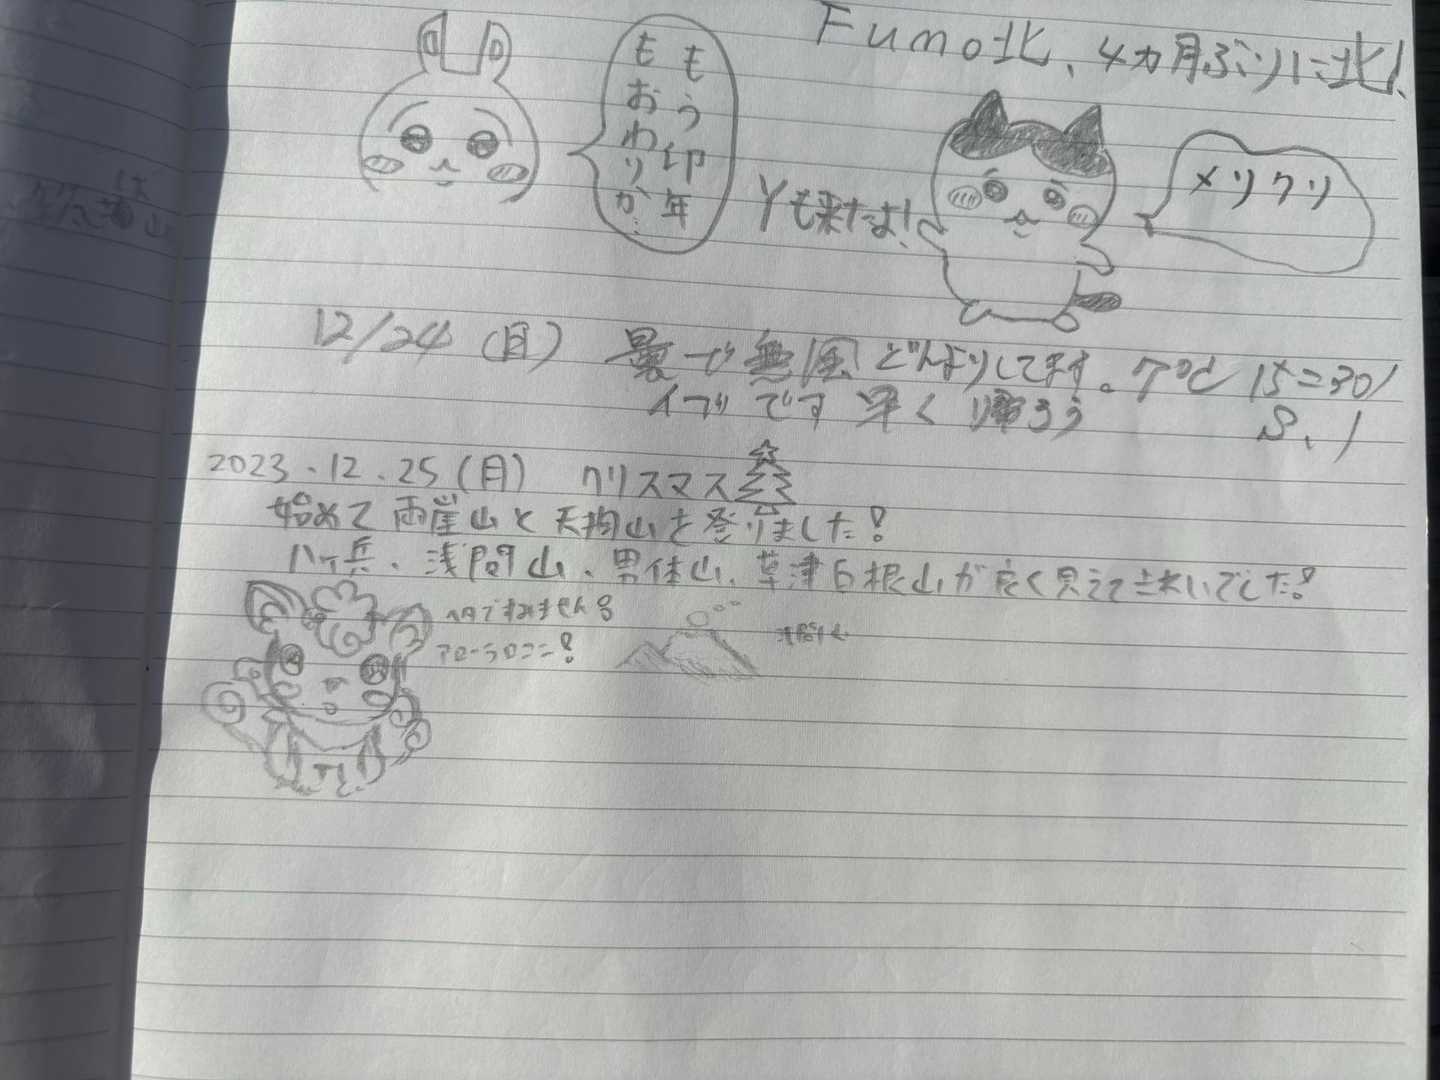 Fumo北、4カ月ぶりに北!
もう卯年
もおわりか…
Yも来たよ!
メリクリ
12/24 (日) 曇で無風どんよりしてます。7℃ 15=30
イブです 早く帰ろう
2023.12.25(月) クリスマス
始めて両崖山と天狗山を登りました!
八ヶ兵、浅間山、男体山、草津白根山が良く見えてきれいでした!
ヘタですみません